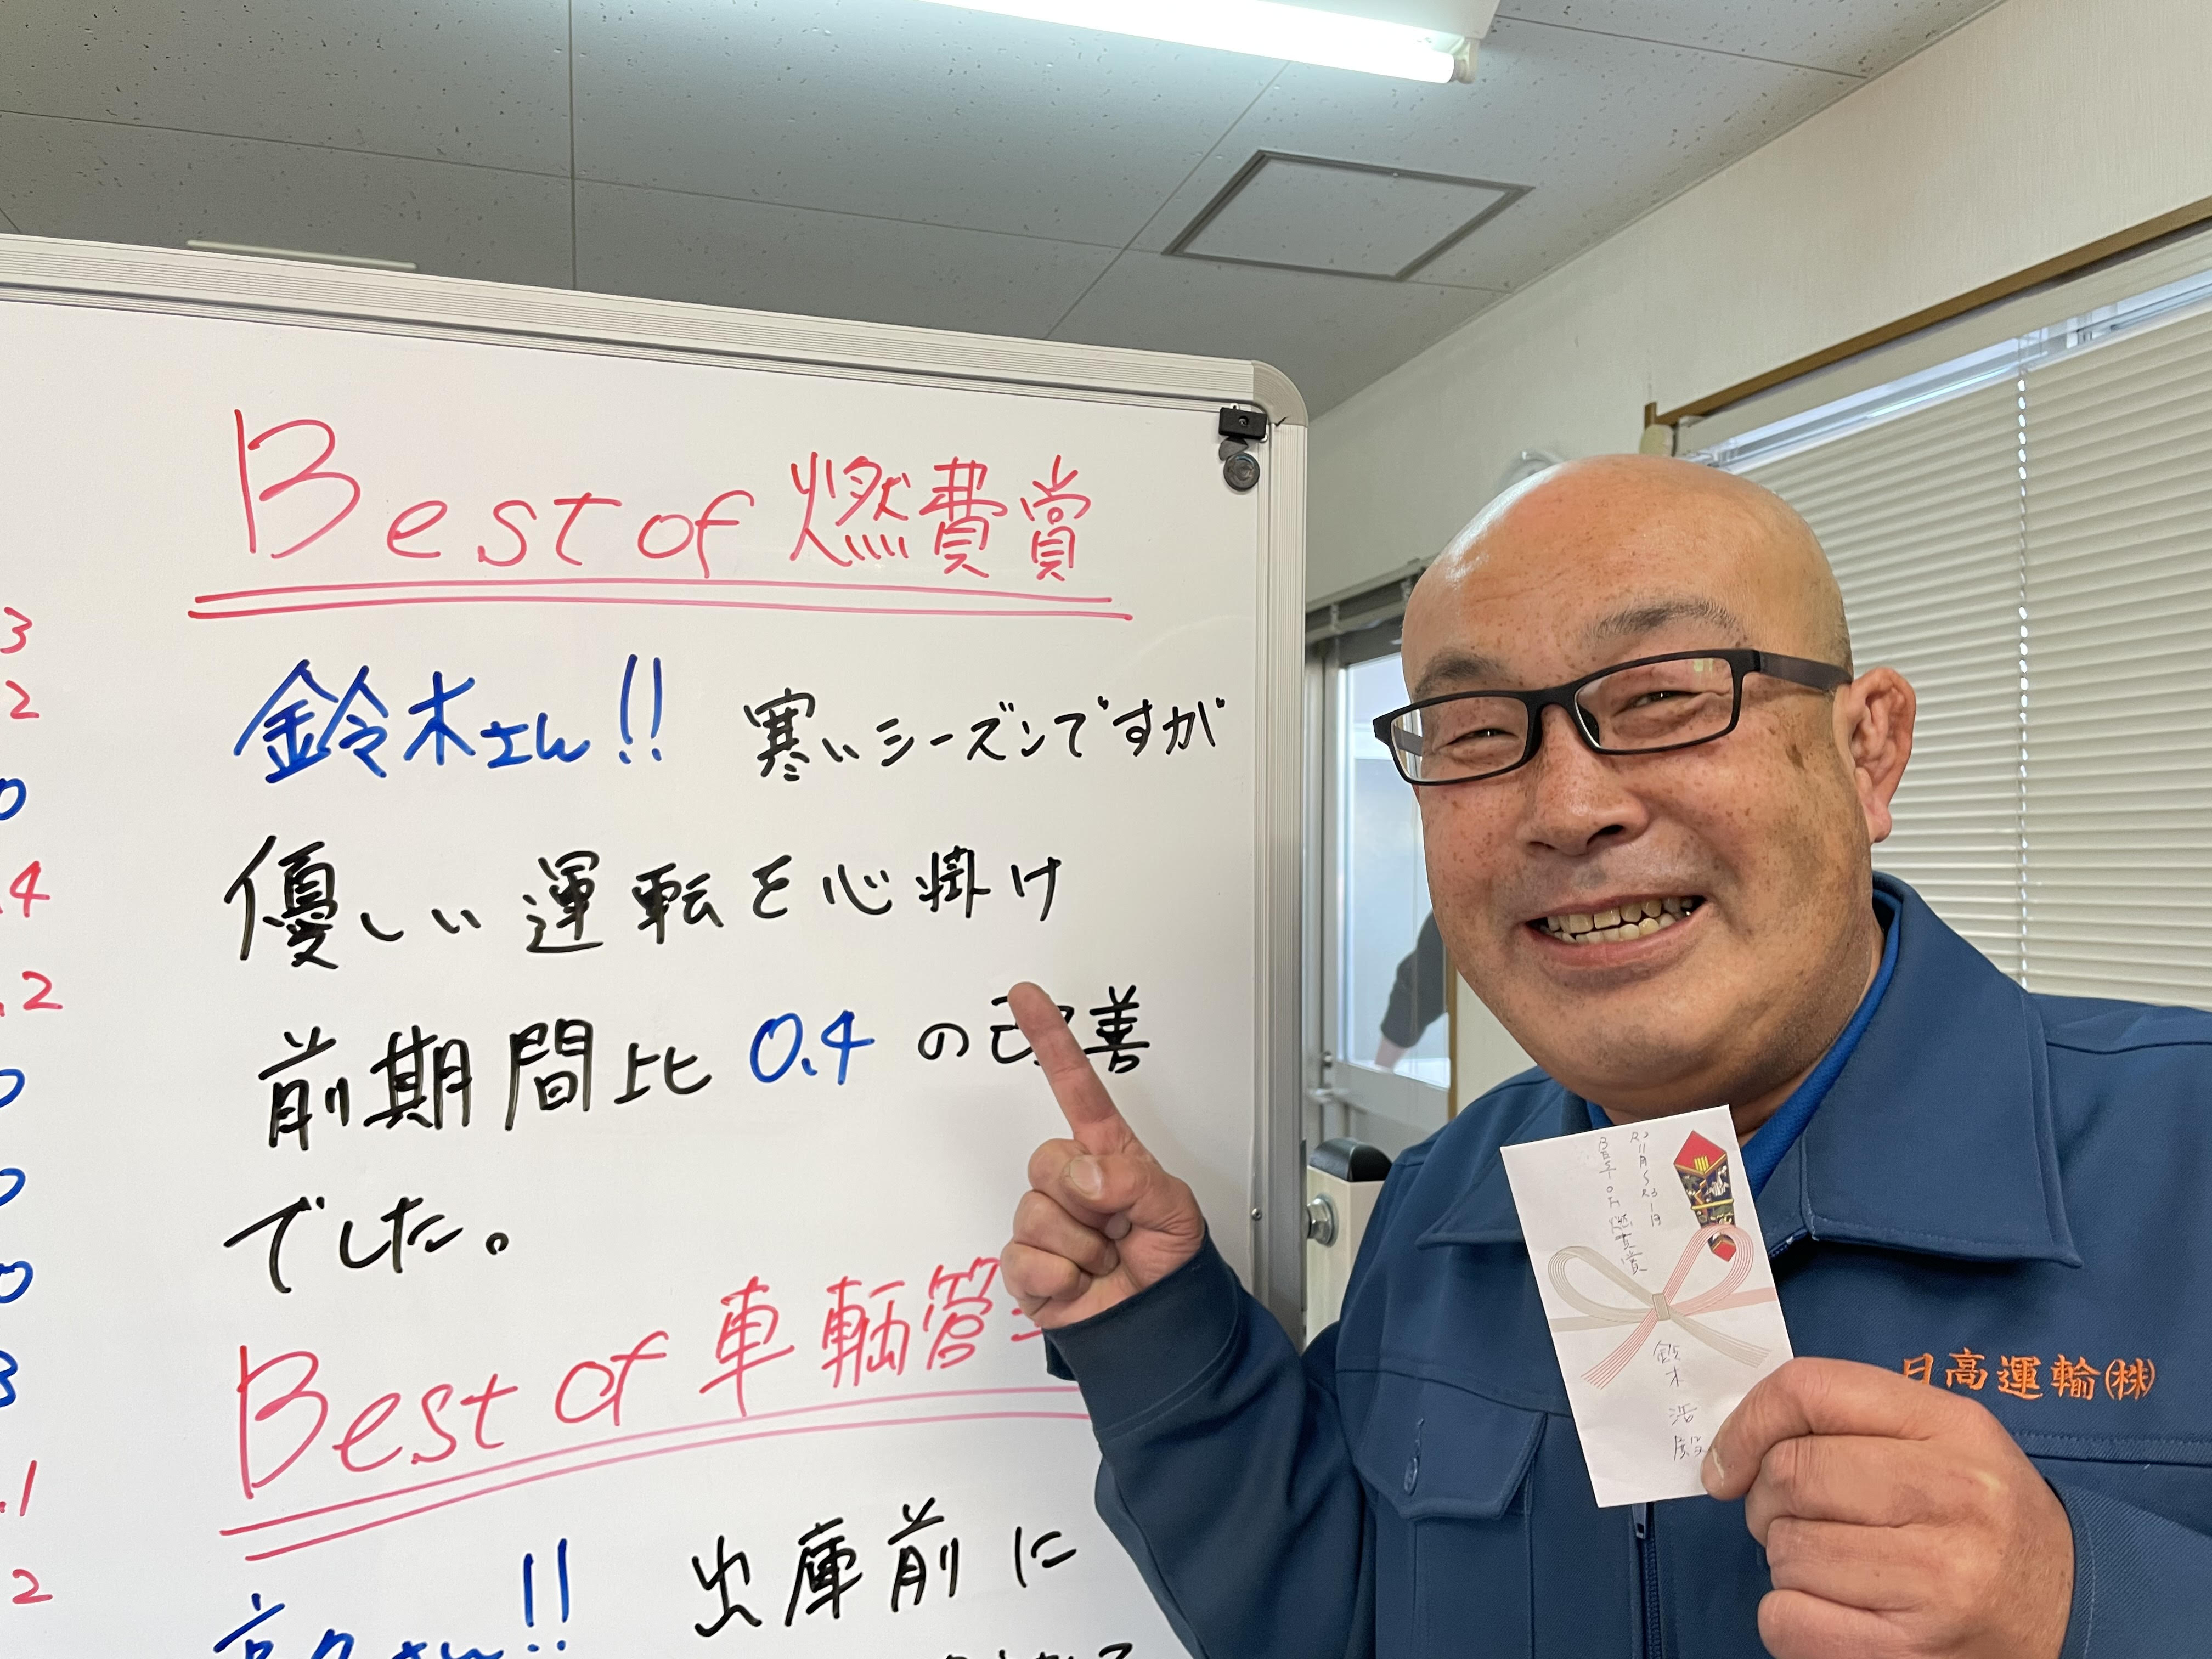 Best of 燃費賞
鈴木さん!! 寒いシーズンですが
優しい運転を心掛け
前期間比 0.4 の改善
でした。
Best of 車輌管
出庫前に
3
2
0
.4
.2
0
0
0
3
.1
2
R2 11月〜R3 1月
BEST OF 燃費賞
鈴木 浩 殿
日高運輸㈱